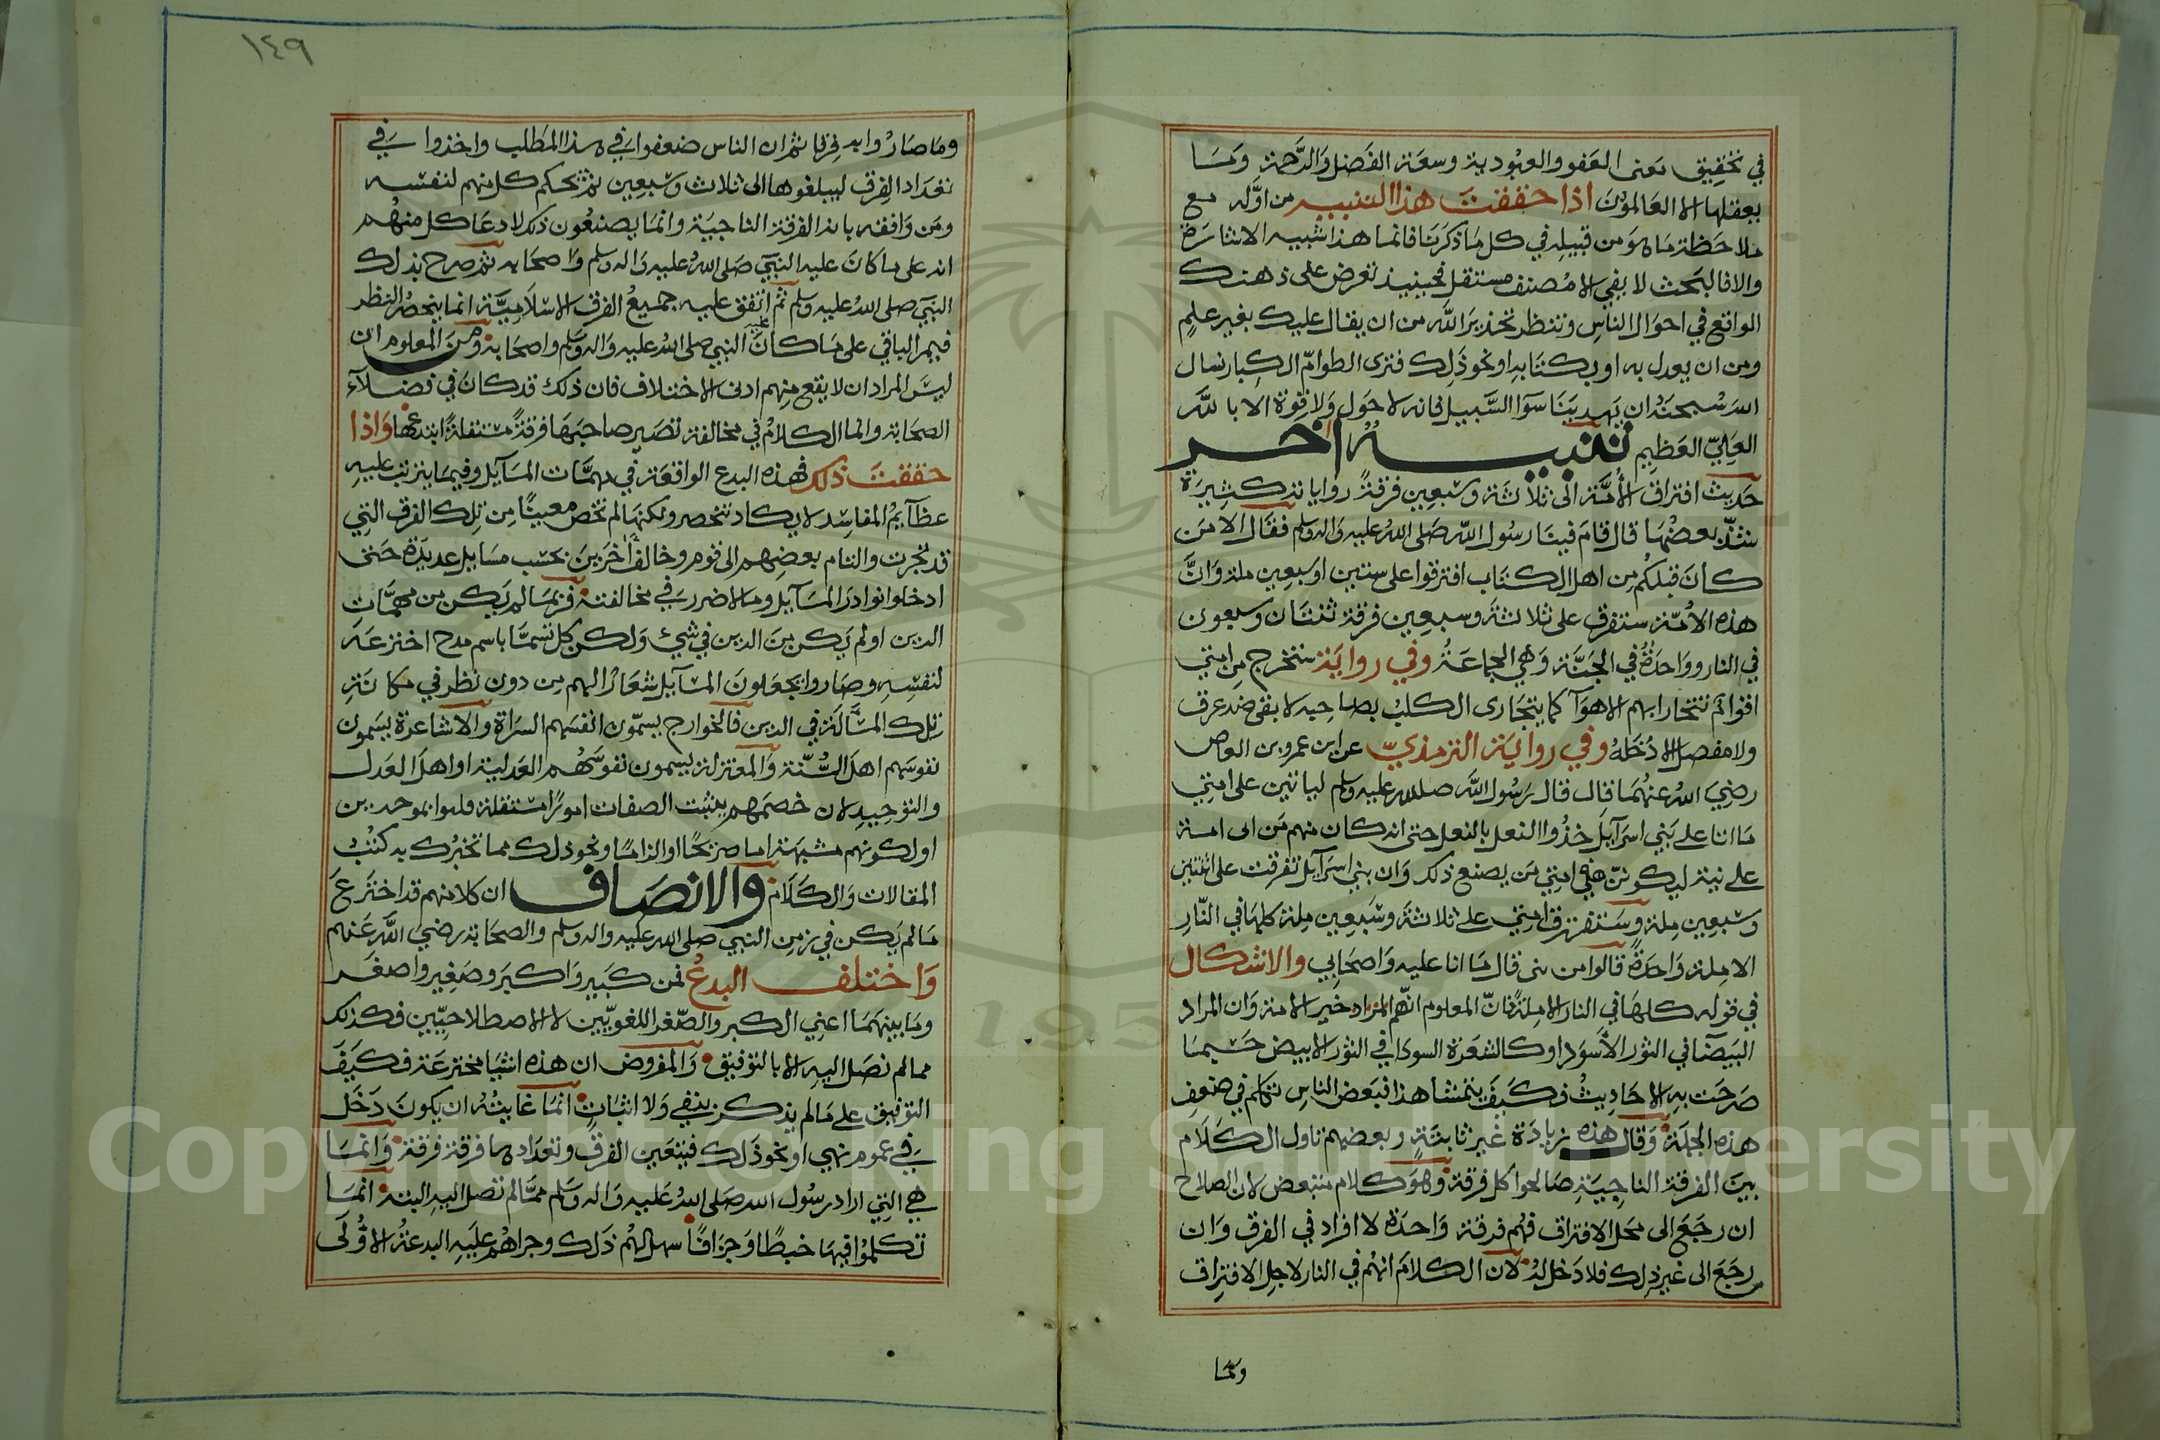 في تحقيق معنى العفو والعبودية وسعة الفضل والرحمة وما
يعقلها الا العالمون اذا حققت هذا التنبيه من اوله مع
ملاحظة ماهو من قبيله في كل ما ذكرنا فانما هذا شبيه الاشارة
والا فالبحث لا يفي الا مصنف مستقل فحينيذ تعرض على ذهنك
الواقع في احوال الناس وتنظر تحذير الله من ان يقال عليك بغير علم
ومن ان يعدل به او بكتابه او نحو ذلك فترى الطوام الكبار نسال
الله سبحنه ان يهدينا سوآ السبيل فانه لا حول ولا قوة الا بالله
العلي العظيم تنبيه اخر
حديث افتراق الأمة الى ثلاثة وسبعين فرقة رواياته كثيرة
بعضها قال قام فينا رسول الله صلى الله عليه واله وسلم فقال الا من
كان قبلكم من اهل الكتاب افترقوا على سنتين اوسبعين ملة وان
هذه الأمة ستفرق على ثلاثة وسبعين فرقة ثنتان وسبعون
في النار وواحدة في الجنة وهي الجماعة وفي رواية ستخرج من امتي
اقوام تتجارا بهم الاهوآ كما يتجارى الكلب بصاحبه لا بقى منه عرق
ولا مفصل الا دخله وفي رواية الترمذي عن ابن عمرو بن العاص
رضي الله عنهما قال قال رسول الله صلى الله عليه وسلم لياتين على امتي
ما اتا على بني اسرآيل حذوا النعل بالنعل حتى انه كان منهم من اتى امه
علانية ليكونن في امتي من يصنع ذلك وان بني اسرآيل تفرقت على اثنتين
وسبعين ملة وستفترق امتي على ثلاثة وسبعين ملة كلها في النار
الا ملة واحدة قالوا من هي قال ما انا عليه واصحابي والاشكال
في قوله كلها في النار الا ملة فان المعلوم انهم المراد خير الامة وان المراد
البيضآ في الثور الأسود او كالشعرة السودا في الثور الابيض حسبما
صرحت به الاحاديث فكيف يتمشا هذا فبعض الناس تكلم في ضعف
هذه الجملة وقال هذه زيادة غير ثابتة وبعضهم تاول الكلام
بين الفرقة الناجية صالحوا كل فرقة وهو كلام لان الصلاح
ان رجع الى محل الافتراق فهم فرقة واحدة لا افراد في الفرق وان
رجع الى غير ذلك فلا دخل له لان الكلام انهم في النار لاجل الافتراق
وما
١٤٩
وما صاروا به فرقا ثم ان الناس ضعفوا في هذا المطلب واخذوا في
تعداد الفرق ليبلغوها الى ثلاث وسبعين ثم تحكم كل منهم لنفسه
ومن وافقه بانه الفرقة الناجية وانما يصنعون ذكك لادعا كل منهم
انه على ما كان عليه النبي صلى الله عليه واله وسلم واصحابه ثم صرح بذلك
النبي صلى الله عليه وسلم ثم اتفق عليه جميع الفرق الاسلامية انما ينحصر النظر
فيمن الباقي على ما كان عليه النبي صلى الله عليه واله وسلم واصحابه ومن المعلوم ان
ليس المراد ان لا يقع منهم ادنى الاختلاف فان ذلك قد كان في فضلآء
الصحابة وانما الكلام في مخالفة تصير صاحبها فرقة مستقلة ابتدعها واذا
حققت ذلك فهذه البدع الواقعة في مهمات المسآيل وفيما يترتب عليه
عظآيم المفاسد لا يكاد تنحصر ولكنها لم تخص معينا من تلك الفرق التي
قد تحزبت والتام بعضهم الى قوم وخالف اخرين بحسب مسايل عديدة حتى
ادخلوا نوادر المسآيل وما لا ضرر في مخالفته فربما لم يكن من مهمات
الدين او لم يكن من الدين في شيء ولكن كل تسما باسم مدح اخترعه
لنفسه وصاروا يجعلون المسآيل شعارا لهم من دون نظر في مكانة
تلك المسألة في الدين فالخوارج يسمون انفسهم السراة والاشاعرة يسمون
نفوسهم اهل السنة والمعتزلة يسمون نفوسهم العدلية او اهل العدل
والتوحيد لان خصمهم يثبت الصفات امورا مستقلة فليوا بموحدين
او لكونهم مشبهة اما صريحا او الزاما ونحو ذلك مما تخبرك به كتب
المقالات والكلام والانصاف ان كلا منهم قد اخترع
ما لم يكن في زمن النبي صلى الله عليه واله وسلم والصحابة رضي الله عنهم
واختلف البدع فمن كبير واكبر وصغير واصغر
وما بينهما اعني الكبر والصغر اللغويين لا الاصطلاحيين فكذلك
مما لم نصل اليه الا بالتوفيق والمفروض ان هذه اشيا مخترعة فكيف
التوفيق على ما لم يذكر بنفي ولا اثبات انما غايته ان يكون دخل
في عموم نهي او نحو ذلك فتتعين الفرق وتعدادها فرقة فرقة وانما
هي التي اراد رسول الله صلى الله عليه واله وسلم مما لم نصل اليه البتة انما
تكلموا فيها خبطا وجزافا سهل لهم ذلك وجراهم عليه البدعة الاولى
Copyright © King Saud University
1957